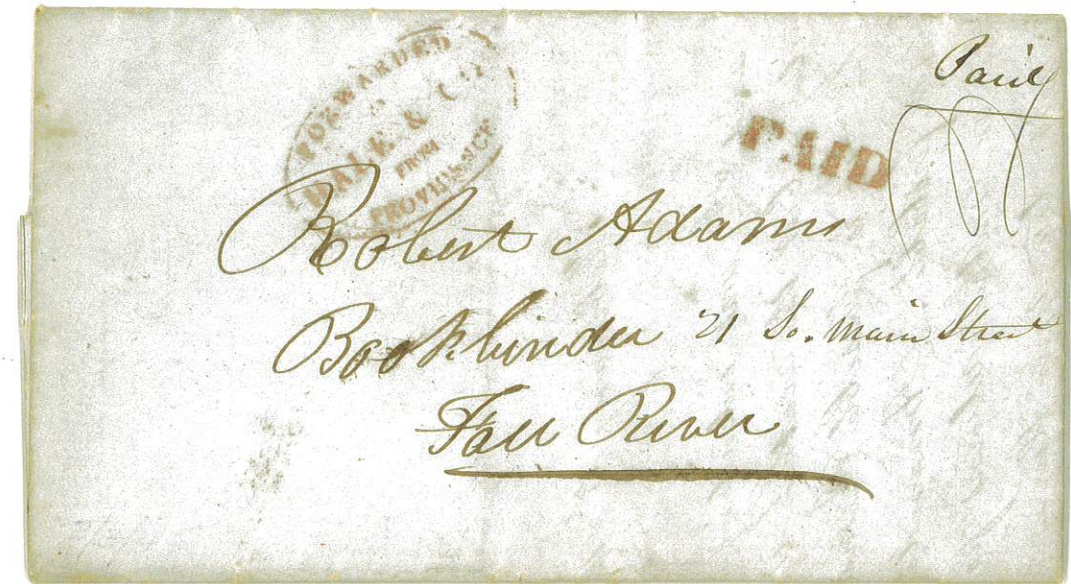 FORWARDED
BY
WALE & CO
FROM
PROVIDENCE
PAID
Paid
Robert Adams
Bookbinder 21 So. Main Street
Fall River